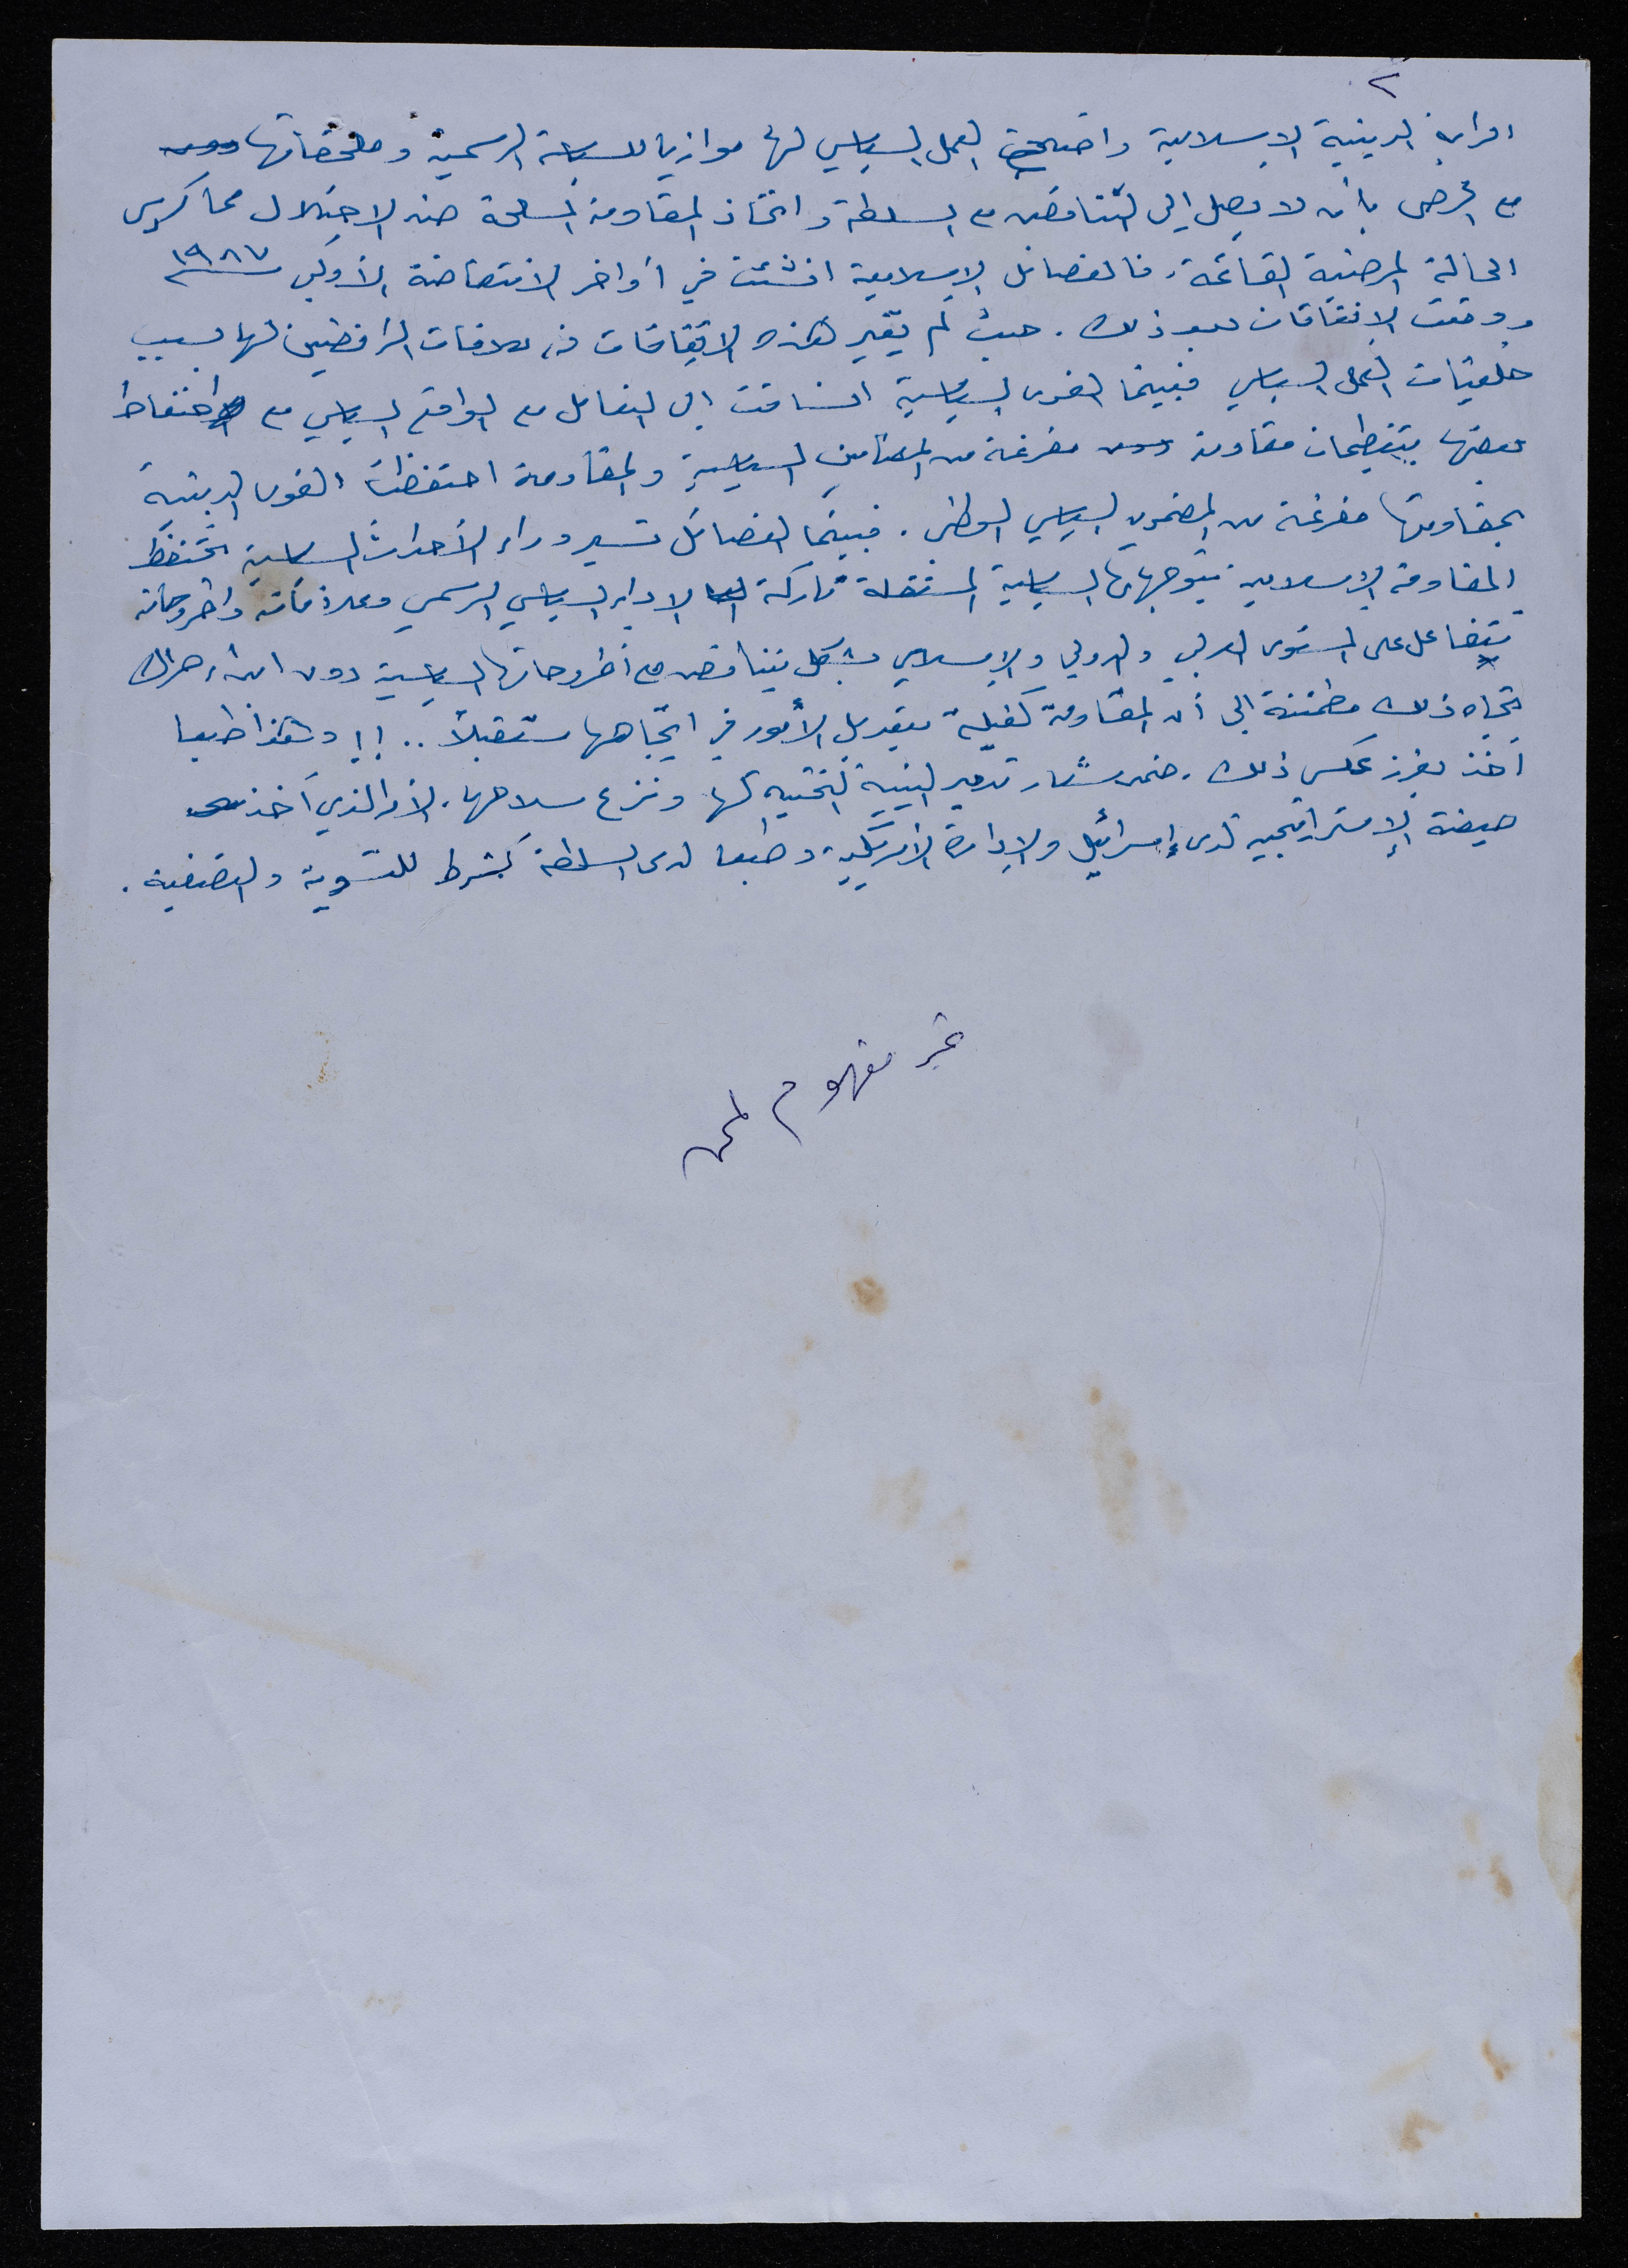 ٢
الدينية الإسلامية واضحى العمل السياسي لها موازيا للسياسة الرسمية وملحقاتها
مع الحرص بأن لا يصل إلى التناقض مع السلطة واتخاذ المقاومة المسلحة ضد الاحتلال مما كرس
الحالة المرضية القائمة. فالفصائل الإسلامية انشئت في أواخر الانتفاضة الأولى ١٩٨٧
ووقعت الاتفاقات بعد ذلك. حيث لم يتغير هذه الاتفاقات من علاقات الرافضين لها بسبب
خلفيات العمل السياسي فبينما القوى السياسية انساقت إلى التعامل مع الواقع السياسي مع احتفاظ
بعضها بتنظيمات مقاومة مفرغة من المضامين السياسية والمقاومة احتفظت القوى الدينية
بمقاومتها مفرغة من المضمون السياسي الوطني. فبينما الفصائل تسير وراء الأحداث السياسية تحتفظ
المقاومة الإسلامية بتوجهاتها السياسية المستقلة تاركة الاداء السياسي الرسمي وعلاقاته واطروحاته
تتفاعل على المستوى العربي والدولي والإسلامي بشكل يتناقض مع أطروحاتها السياسية دون
تجاه ذلك مطمئنة إلى أن المقاومة كفيلة بتعديل الأمور في اتجاهها مستقبلاً .. !! وهذا طبعا
أخذ يفرز عكس ذلك. ضمن شعار تدمير البنية التحتية لها ونزع سلاحها. الأمر الذي أخذ
صيغة الإستراتيجية لدى إسرائيل والإدارة الأمريكية وطبعا لدى السلطة كشرط للتسوية والتصفية.
غير مفهوم